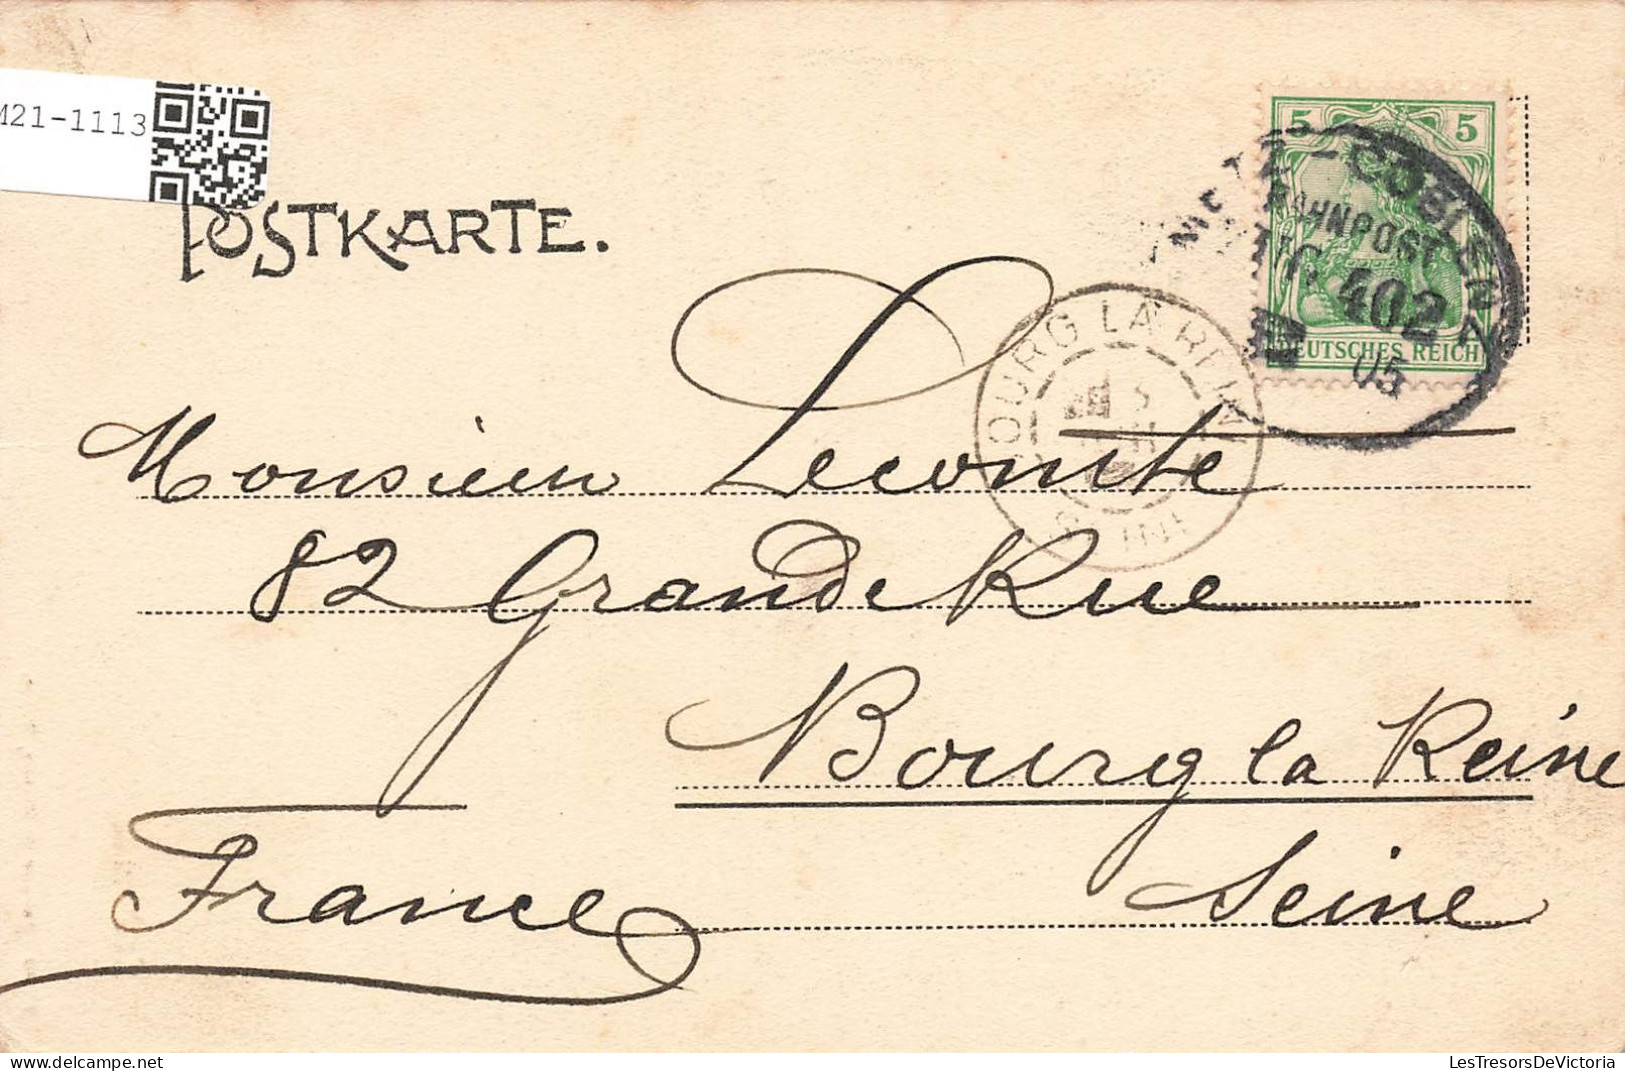 M21-1113
POSTKARTE.
5 5
METZ-COBLENZ
BAHNPOST
ZUG 402
05
DEUTSCHES REICH
BOURG LA REINE
5
Monsieur Lecomte
82 Grande Rue
Bourg la Reine
Seine
France
LesTresorsDeVictoria